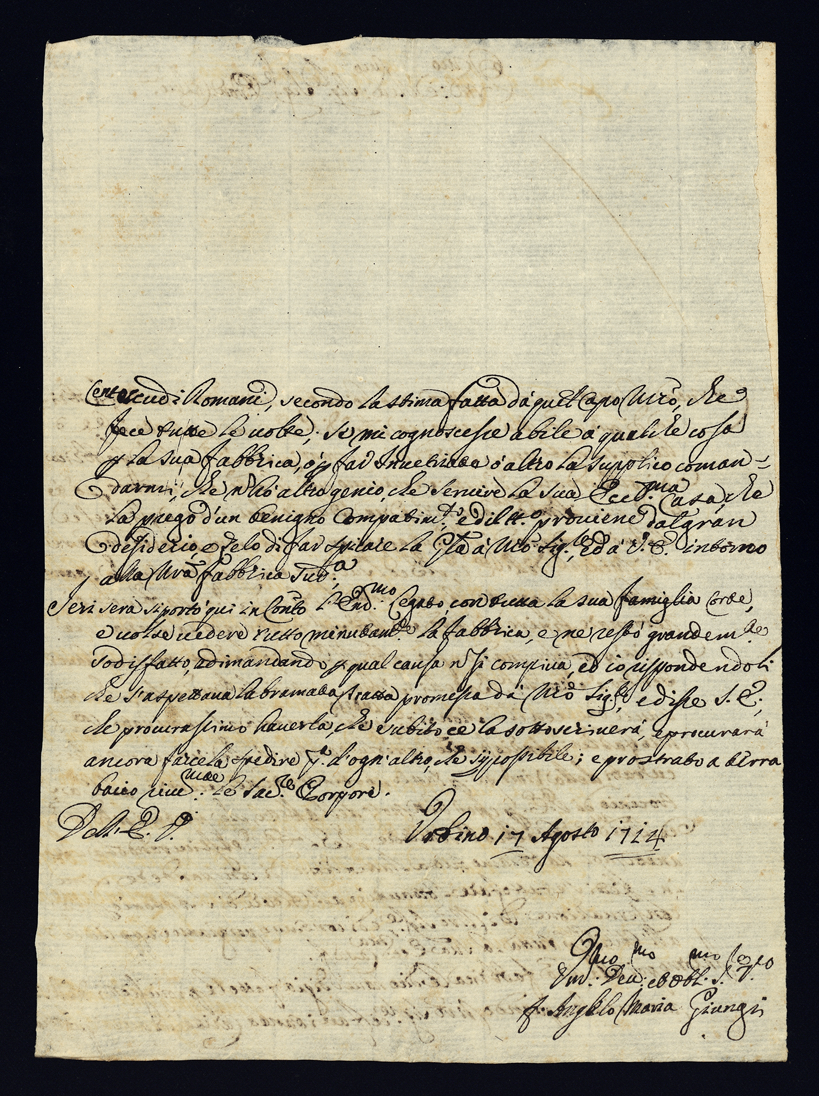 Cento scudi Romani, secondo la stima fatta da quel Capo Mrõ, che
fece tutte le uolte; se mi cognoscesse abile a qualche cosa
p la sua fabbrica, ò p far Inuetriata ò altro la supplico coman=
darmi, che nõ hò altro genio, che seruire la sua Ecc.ma Casa, che
la prego d'un benigno Compatim.to, e di tt.o proviene dal gran
desiderio, e zelo di far spiccare la Gl.a à Nrõ Sig.re, ed à S. E. intorno
alla Nrã fabbrica sud.a
Ieri sera si portò qui in Conto l'Em.mo Legato, con tutta la sua famiglia Corte,
e uolse uedere tutto minutam.te la fabbrica, e ne restò grandem.te
sodisfatto, adimandando p qual causa nõ si compiua, ed io rispondendoli
che s'aspettaua la bramata tratta promessa da Nrõ Sig.re, e disse S. E.,
che procurassimo hauerla, che subito ce la sottoscriuerà, e procurarà
ancora farcela spedire p.a d'ogn'altro, se sij possibile; e prostrato a terra
bacio riue.mte le Sac.re Porpore.
Dell' E. V.
Vrbino 17 Agosto 1724
Vmo mo mo
Vmil. Deu. ed Obbl. S.
f. Angelo Maria Giungi